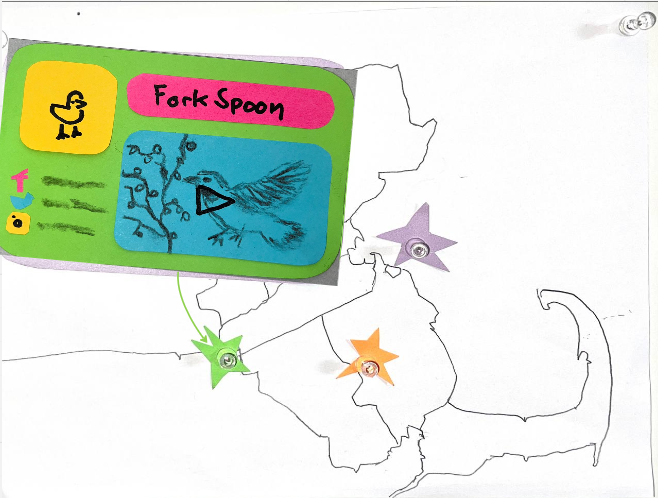 Fork Spoon